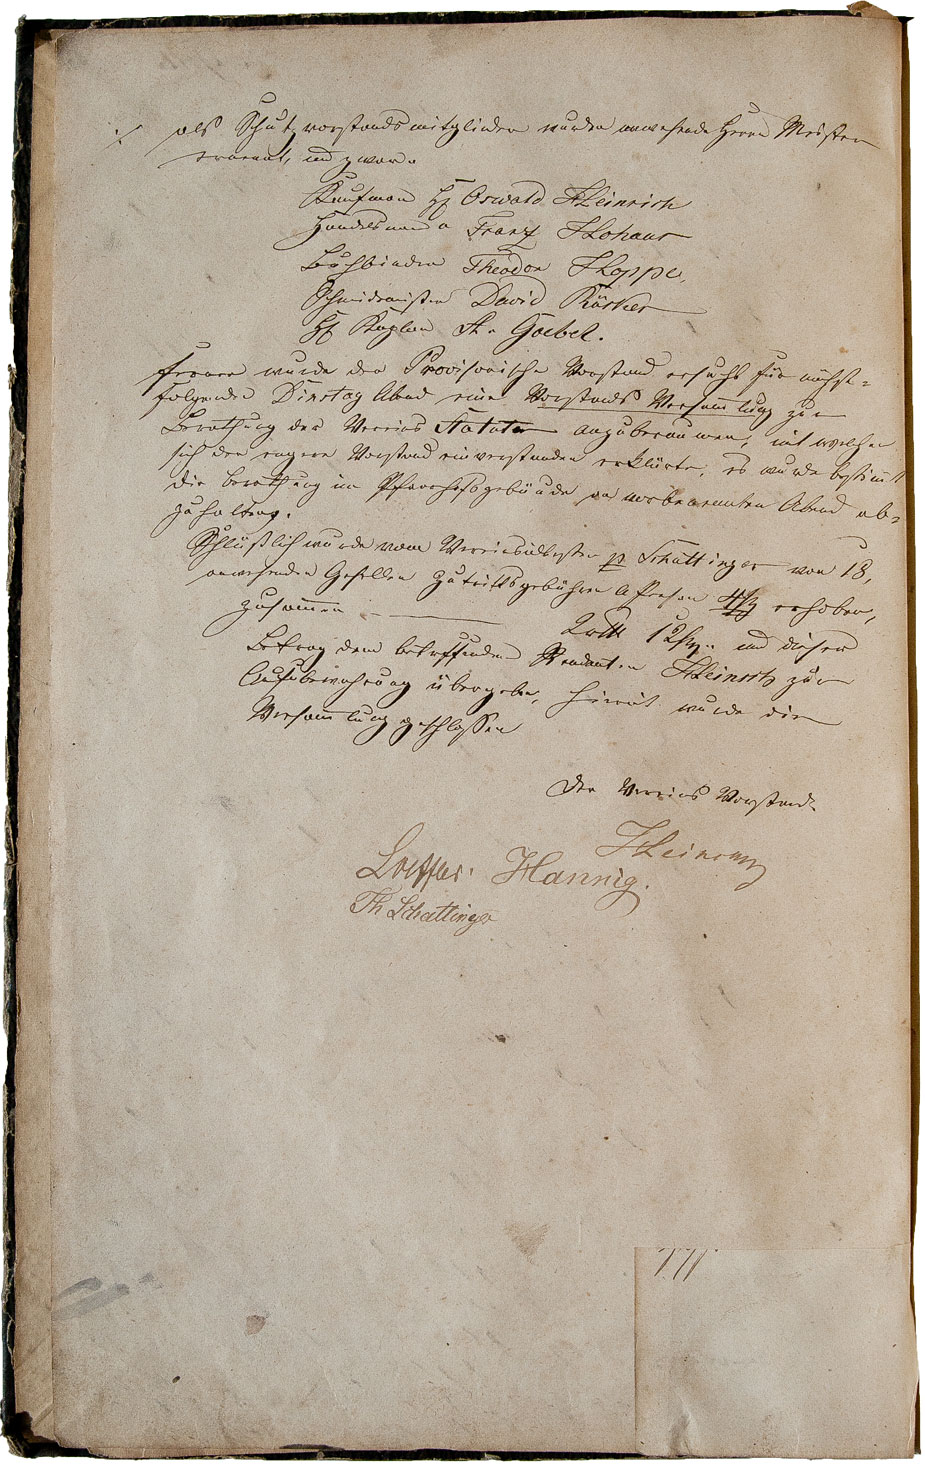 als Schutzvorstandsmitglieder wurden anwesende Herrn Meister
ernannt, und zwar.
Kaufman H Oswald Heinrich
Handelsmann Franz Hohaus
Buchbinder Theodor Hoppe,
Schmidemeister David Rösner
H Kaplan A. Goebel.
ferner wurde der Provisorische Vorstand ersucht für nächst-
folgenden Dinstag Abend eine Vorstands Versammlung zur
Berathung der Vereins Statuten anzuberaumen, mit welcher
sich der engere Vorstand einverstanden erklärte, es wurde bestimmt
die Berathung im Pfarrhofsgebäude an vorbenannten Abend ab-
zuhalten.
Schlüßlich wurde vom Vereinsältesten Schattinger von 18,
anwesenden Gesellen Zutrittsgebühren a Person erhoben,
zusammen 12 und dieser
Betrag dem betreffenden Rendanten Heinrich zur
Aufbewahrung übergeben, hiermit wurde die
Versammlung geschlossen
Der Vereins Vorstand.
Heinrich
Loeffler. Hannig.
Th Schattinger